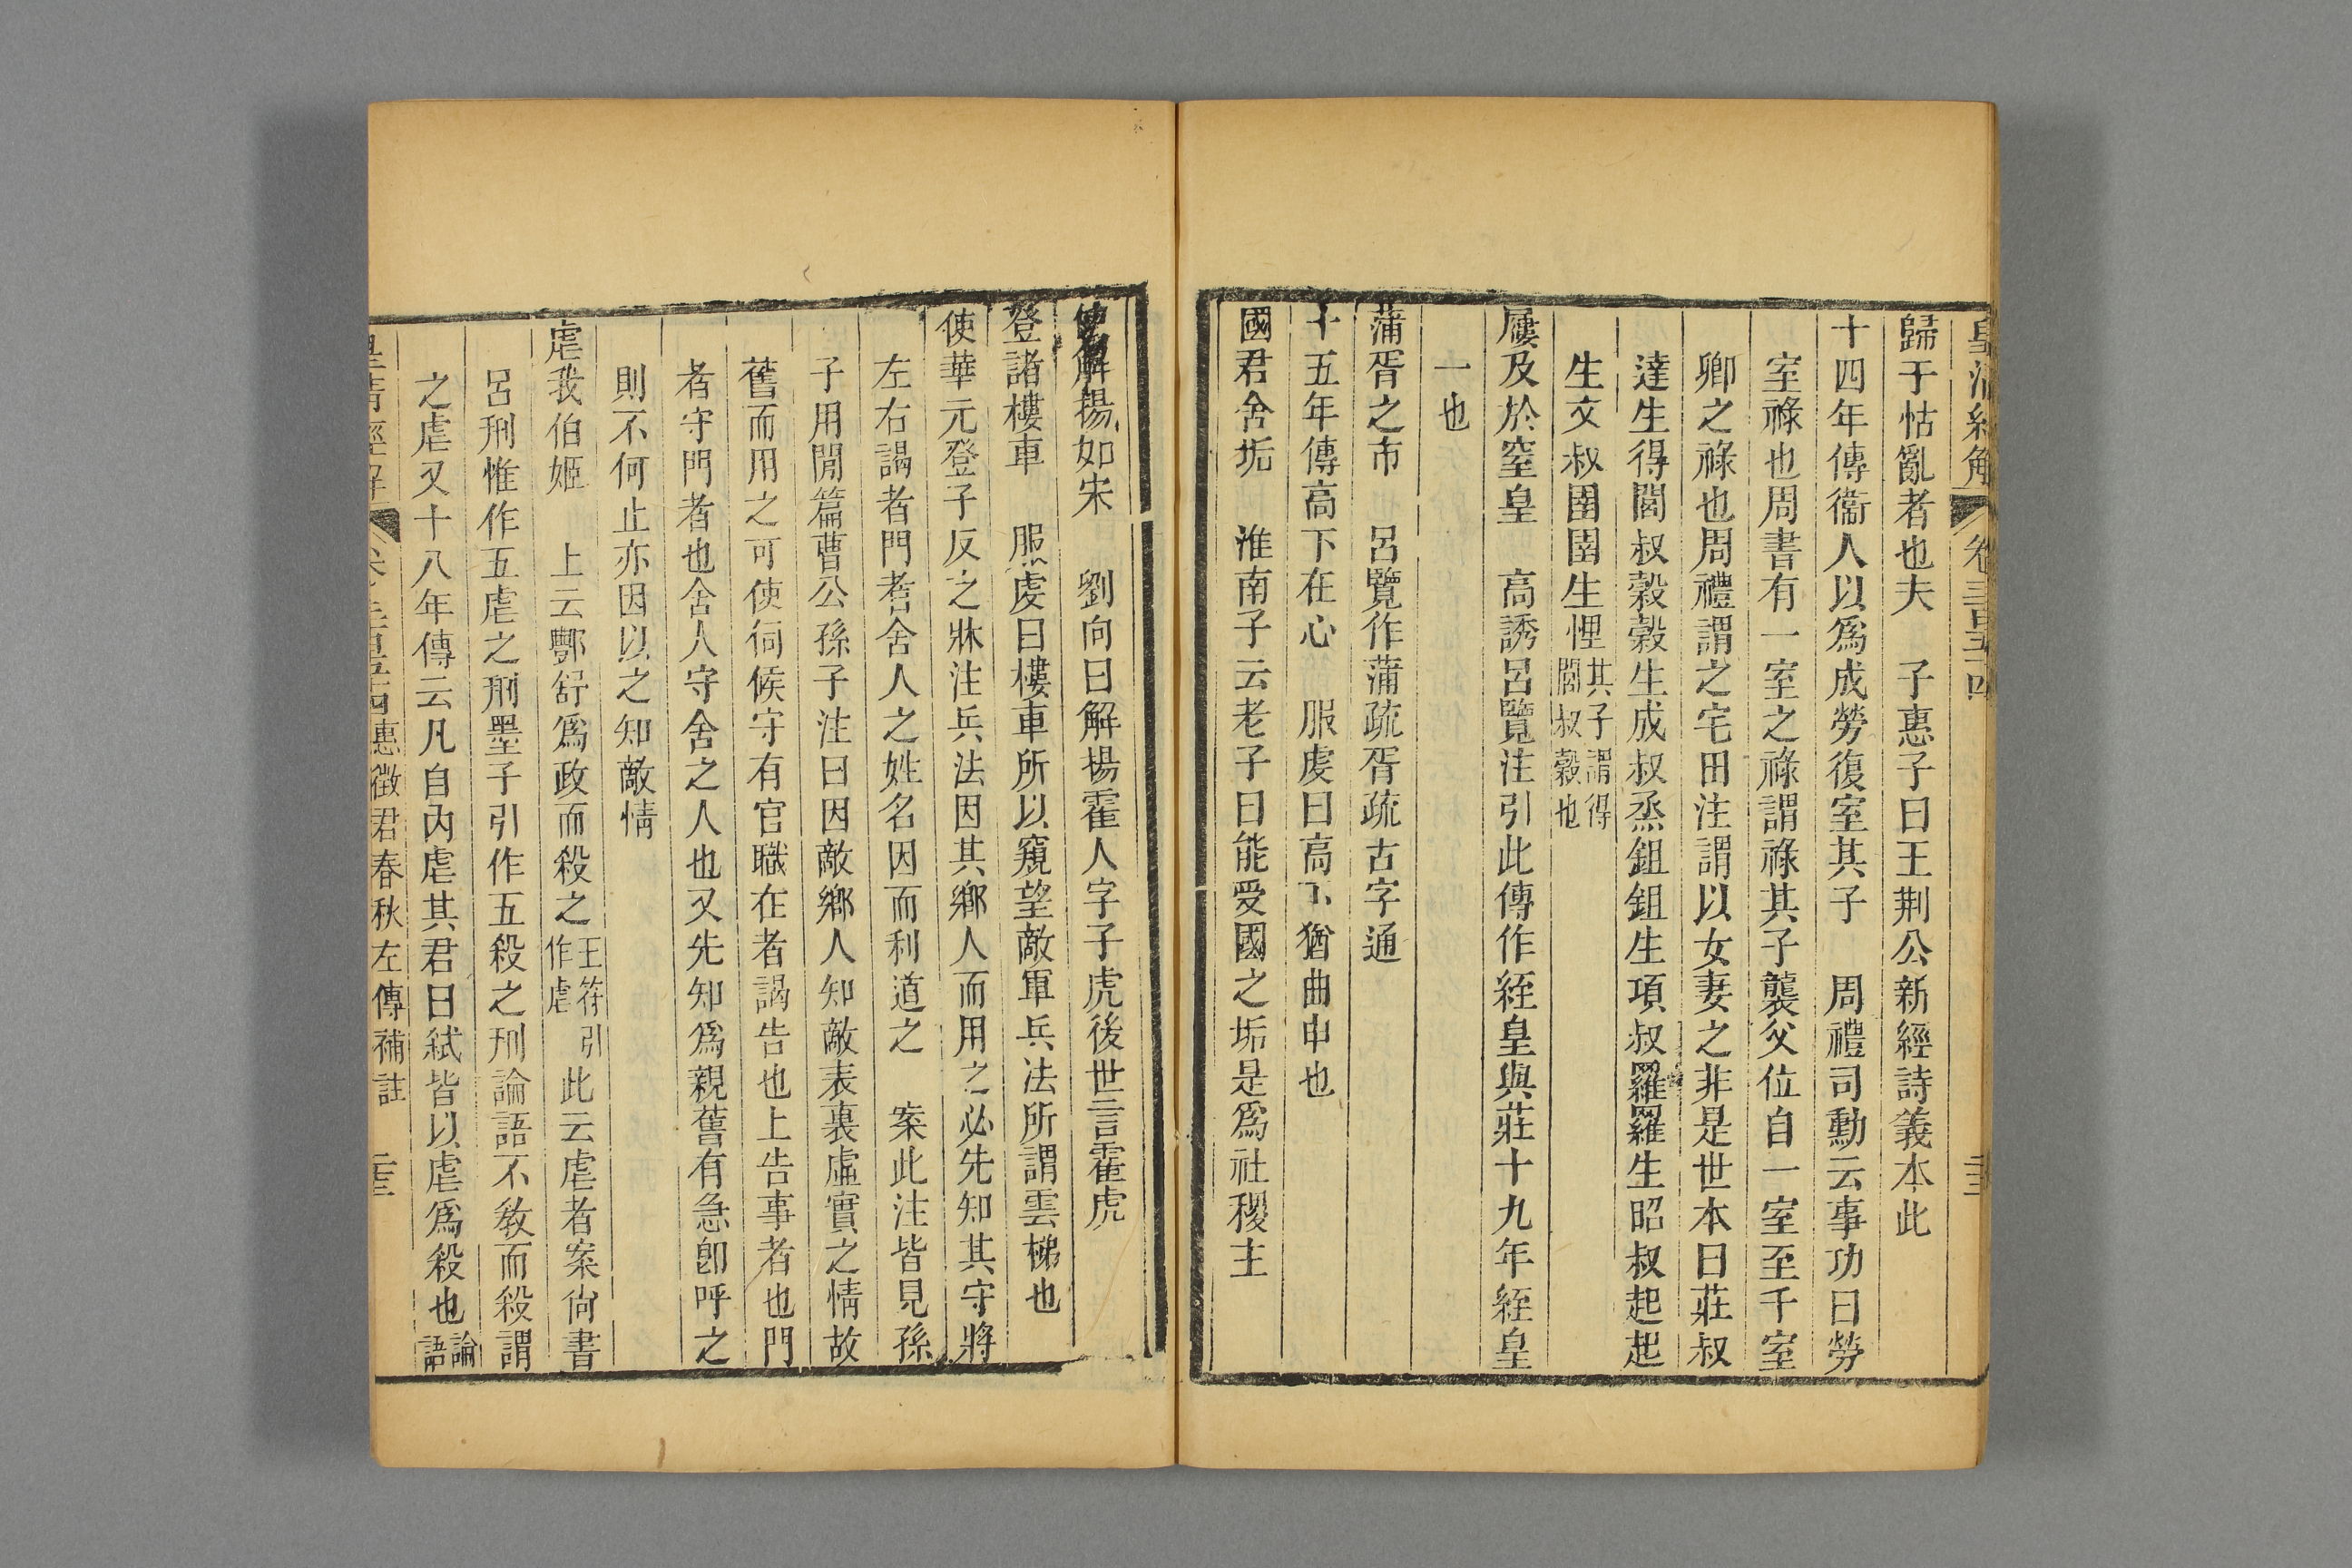 皇清經解 卷三百五十四
歸于怙亂者也夫 子惠子曰王荆公新經詩義本此
十四年傳衞人以爲成勞復室其子 周禮司勳云事功曰勞
室祿也周書有一室之祿謂祿其子襲父位自一室至千室
卿之祿也周禮謂之宅田注謂以女妻之非是世本曰莊叔
達生得閭叔穀穀生成叔烝鉏鉏生項叔羅羅生昭叔起起
生文叔圉圉生悝其子謂得閭叔穀也
屨及於窒皇 高誘呂覽注引此傳作絰皇與莊十九年絰皇
一也
蒲胥之市 呂覽作蒲疏胥疏古字通
十五年傳高下在心 服虔曰高下猶曲申也
國君舍垢 淮南子云老子曰能受國之垢是爲社稷主
使解揚如宋 劉向曰解揚霍人字子虎後世言霍虎
登諸樓車 服虔曰樓車所以窺望敵軍兵法所謂雲梯也
使華元登子反之牀注兵法因其鄉人而用之必先知其守將
左右謁者門者舍人之姓名因而利道之 案此注皆見孫
子用閒篇曹公孫子注曰因敵鄉人知敵表裏虛實之情故
舊而用之可使伺候守有官職在者謁告也上告事者也門
者守門者也舍人守舍之人也又先知爲親舊有急卽呼之
則不何止亦因以之知敵情
虐我伯姬 上云酆舒爲政而殺之王符引作虐此云虐者案尙書
呂刑惟作五虐之刑墨子引作五殺之刑論語不敎而殺謂
之虐又十八年傳云凡自內虐其君曰弒皆以虐爲殺也論語
皇清經解 卷三百五十四惠徵君春秋左傳補註 三